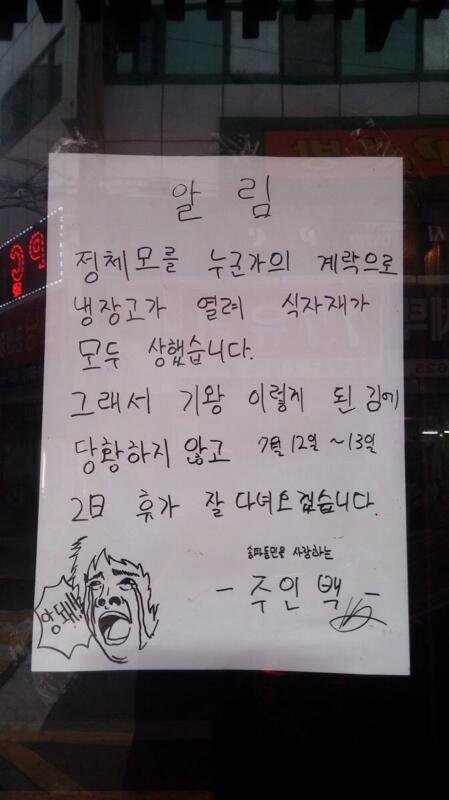 알 림
정체모를 누군가의 계락으로
냉장고가 열려 식자재가
모두 상했습니다.
그래서 기왕 이렇게 된 김에
당황하지 않고 7월 12일 ~ 13일
2日 휴가 잘 다녀오겠습니다.
송파동민을 사랑하는
- 주인 백 -
앙돼!!